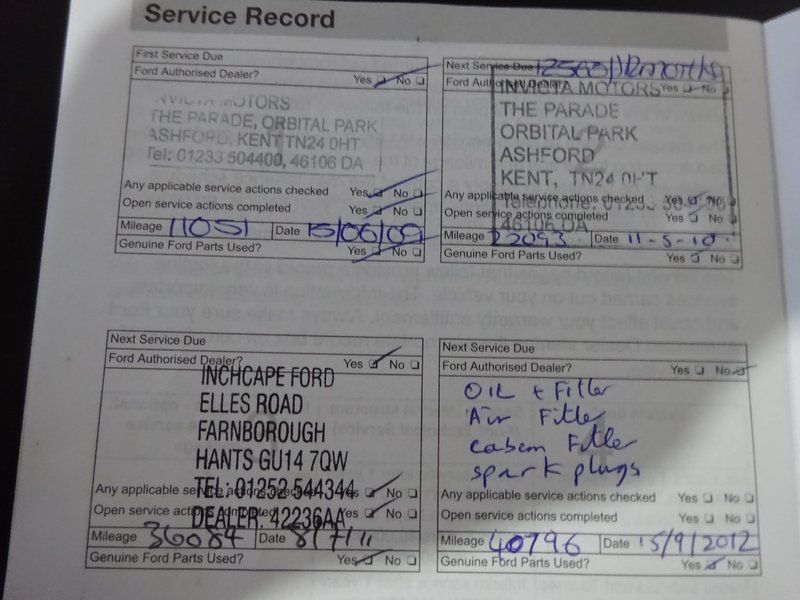 Service Record
First Service Due
Ford Authorised Dealer? Yes No
INVICTA MOTORS
THE PARADE, ORBITAL PARK
ASHFORD. KENT TN24 0HT
Tel: 01233 504400, 46106 DA
Any applicable service actions checked Yes No
Open service actions completed Yes No
Mileage 11051 Date 15/06/09
Genuine Ford Parts Used? Yes No
Next Service Due 12563/12months
Ford Authorised Dealer? Yes No
INVICTA MOTORS
THE PARADE
ORBITAL PARK
ASHFORD
KENT, TN24 0HT
Any applicable service actions checked Yes No
Telephone: 01233
Open service actions completed Yes No
46106 DA
Mileage 22093 Date 11-5-10
Genuine Ford Parts Used? Yes No
Next Service Due
Ford Authorised Dealer? Yes No
INCHCAPE FORD
ELLES ROAD
FARNBOROUGH
HANTS GU14 7QW
TEL: 01252 544344
Any applicable service actions checked Yes No
Open service actions completed Yes No
DEALER: 42236AA
Mileage 36084 Date 8/7/11
Genuine Ford Parts Used? Yes No
Next Service Due
Ford Authorised Dealer? Yes No
OIL + Filter
Air Filter
cabem Filter
spark plugs
Any applicable service actions checked Yes No
Open service actions completed Yes No
Mileage 40796 Date 15/9/2012
Genuine Ford Parts Used? Yes No